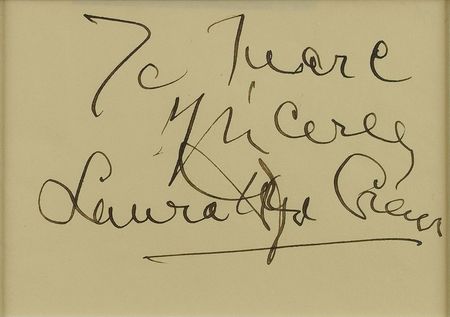 To Marc
Sincerely
Laura Hope Crews